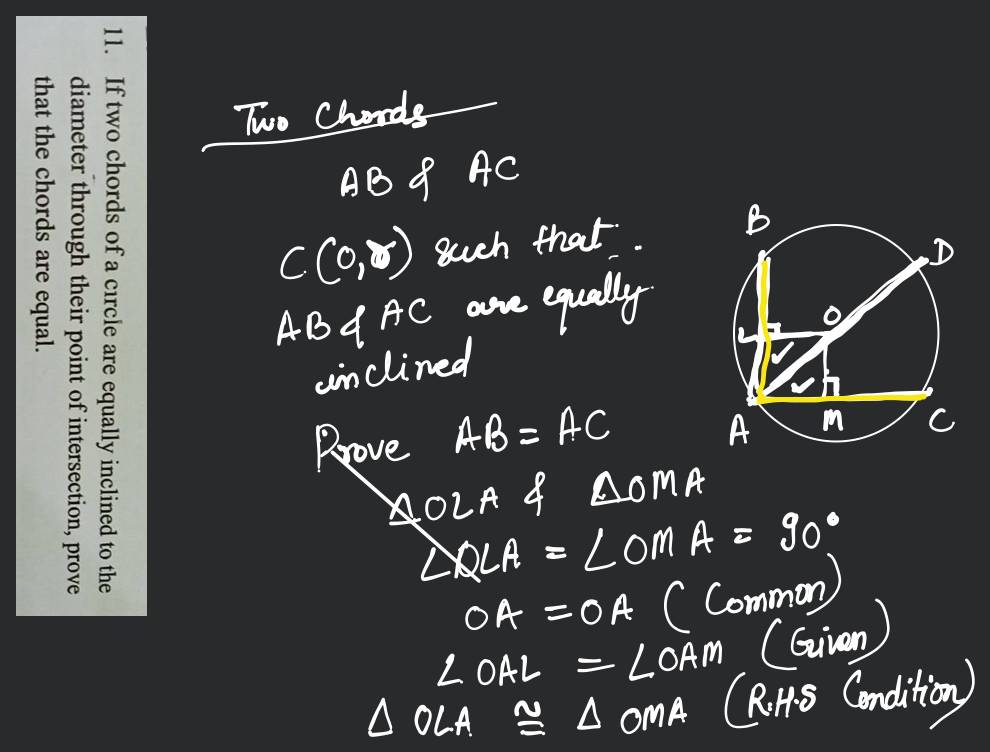 11. If two chords of a circle are equally inclined to the
diameter through their point of intersection, prove
that the chords are equal.
Two Chords
AB & AC
C(O,r) such that
AB & AC are equally
inclined
Prove AB = AC
△OLA & △OMA
∠OLA = ∠OMA = 90°
OA = OA (Common)
∠OAL = ∠OAM (Given)
△ OLA ≅ △ OMA (R.H.S Condition)
B
D
O
L
A
M
C